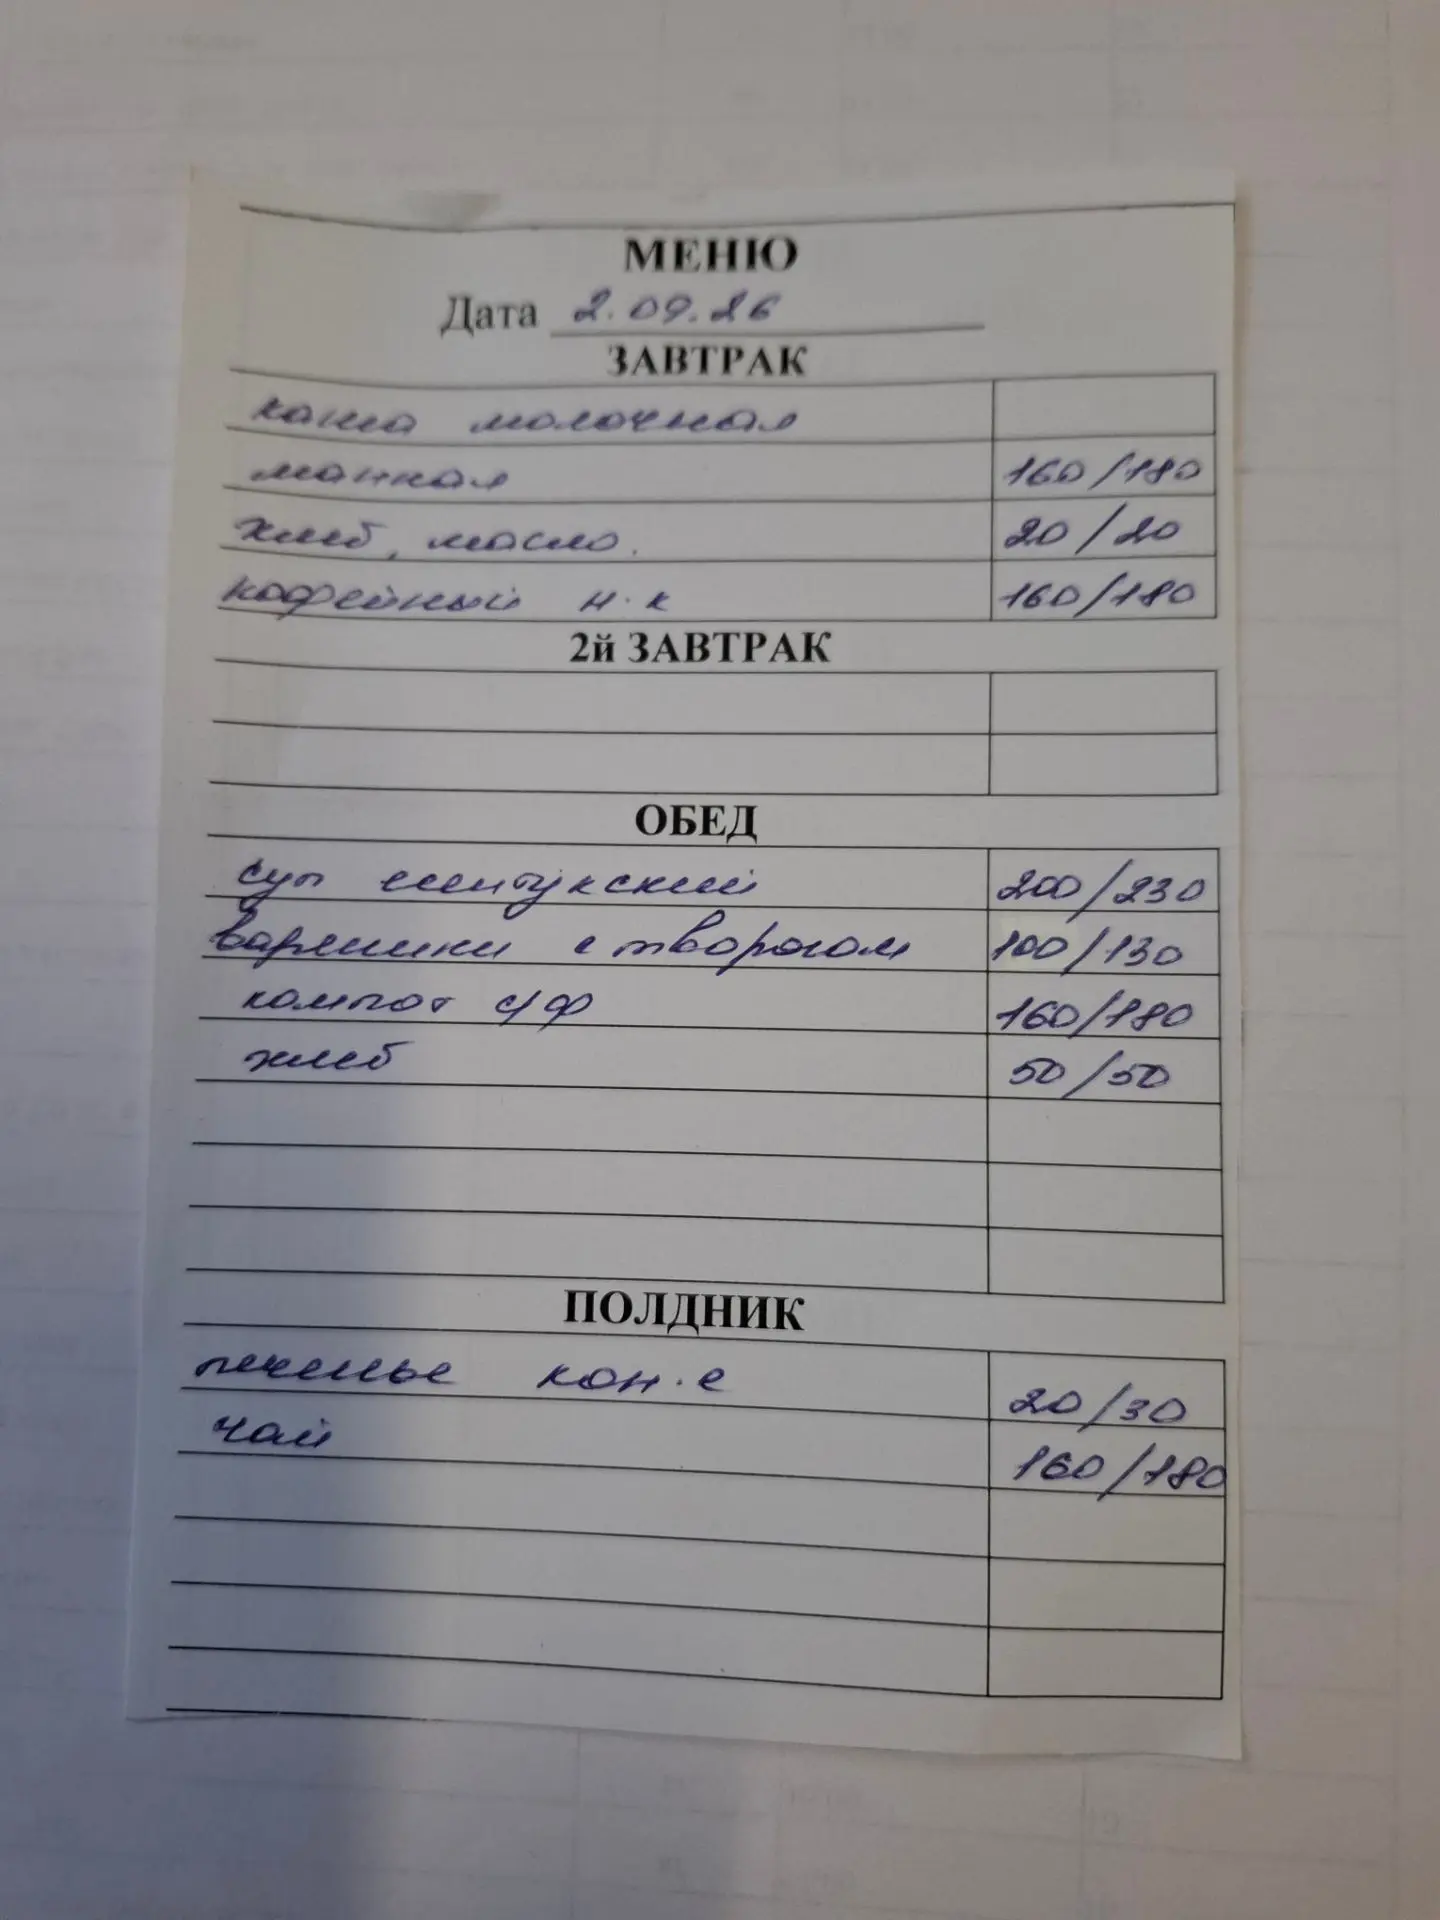 МЕНЮ
Дата 2.09.26
ЗАВТРАК
каша молочная
манная 160/180
хлеб, масло. 20/20
кофейный н.к 160/180
2й ЗАВТРАК
ОБЕД
суп 200/230
вареники с творогом 100/130
компот с/ф 160/180
хлеб 50/50
ПОЛДНИК
печенье кон.е 20/30
чай 160/180